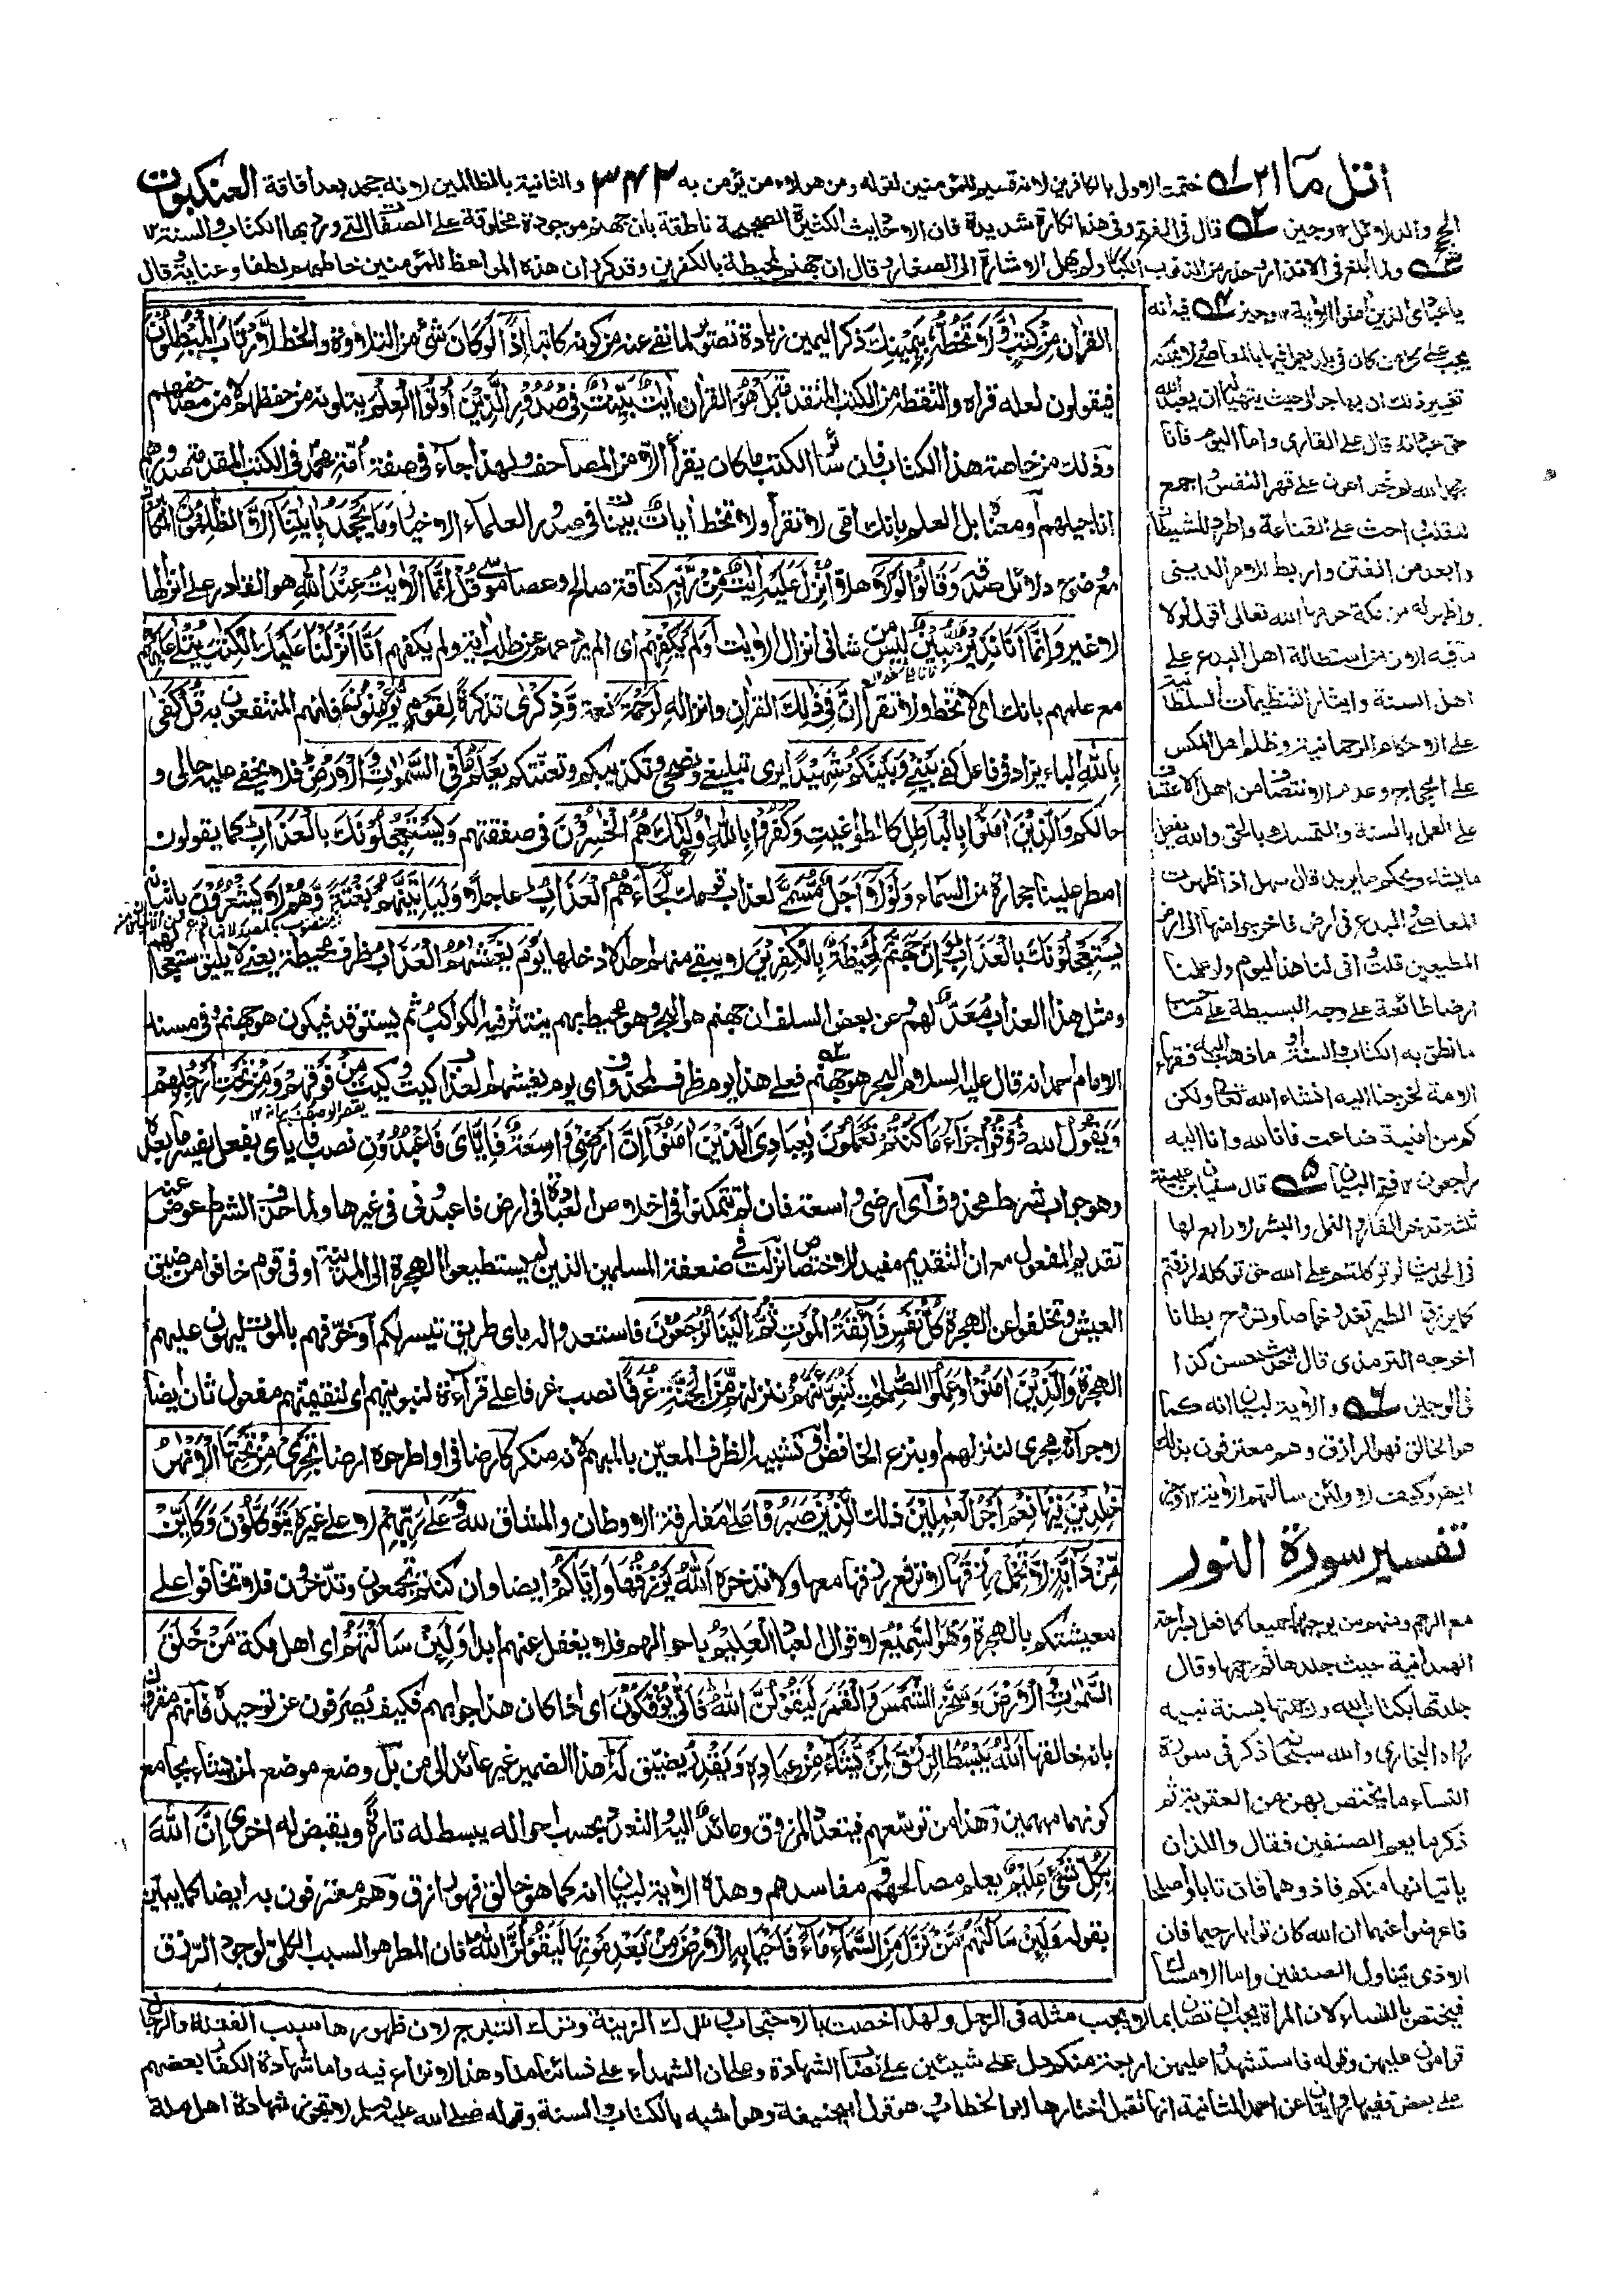 اتل ما ٢١ ٥١ ختمت الاول بالكافرين لانه قسيم للمؤمنين لقوله ومن هؤلاء من يؤمن به ٣٤٣ والثانية بالظالمين لانه جحد بعد اقامة العنكبوت
الحجج والدلائل ١٢ وجيز ٥٢ قال في الفتح وفي هذا نكارة شديدة فان الاحاديث الكثيرة الصحيحة ناطقة بان جهنم موجودة مخلوقة على الصفات التي ورد بها الكتاب والسنة ١٢
ولما بلغ في الانذار وحذر من التكاب ولم يهمل الاشارة الى الصغار وقال ان جهنم لمحيطة بالكفرين وقد كرر ان هذه المواعظ للمؤمنين خاطبهم لطفا وعناية وقال
القران من كتب ولا تخطه بيمينك ذكر اليمين زيادة تصوير لما نفى عنه من كونه كاتبا اذا لو كان شئ من التلاوة والخط لارتاب المبطلون
فيقولون لعله قراه والتقطه من الكتب المتقدمة بل هو القران ايت بينت في صدور الذين اوتوا العلم يتلونه من حفظهم
وذلك من خاصة هذا الكتاب فان سائر الكتب ما كان يقرأ الا من المصاحف ولهذا جاء في صفة امة محمد في الكتب المقدمة صدورهم
اناجيلهم او معناه بل العلم بانك امي لا تقرأ ولا تخط ايات بينات في صدور العلماء الاخيار وما يجحد بايتنا الا الظلمون
مع وضوح دلائل صدقه وقالوا لولا هلا انزل عليه ايت من ربه كناقة صالح وعصا موسى قل انما الايت عند الله هو القادر على انزالها
لا غير وانما انا نذير مبين ليس من شاني انزال الايت اولم يكفهم اي الم يزجر عن طلب اية ولم يكفهم انا انزلنا عليك الكتب يتلى عليهم
مع علمهم بانك امي لا تخط ولا تقرأ ان في ذلك القران وانزاله لرحمة نعمة وذكرى تذكرة لقوم يؤمنون فانهم المنتفعون به قل كفى
بالله الباء يزاد في فاعل كفى بيني وبينكم شهيدا يرى تبليغي ونصحي وتكذيبكم وتعنتكم يعلم ما في السموت والارض فلا يخفى عليه حالي و
حالكم والذين امنوا بالباطل كالطواغيت وكفروا بالله اولئك هم الخسرون في صفقتهم ويستعجلونك بالعذاب كما يقولون
امطر علينا حجارة من السماء ولولا اجل مسمى لعذاب قومك لجاءهم العذاب عاجلا وليأتينهم بغتة وهم لا يشعرون باتيانه
يستعجلونك بالعذاب وان جهنم لمحيطة بالكفرين لا يبقى منهم احد الا دخلها يوم يغشهم العذاب ظرف لمحيطة يعني لا يليق استعجالهم
ومثل هذا العذاب معد لهم وعن بعض السلف ان جهنم هو البحر وهو محيط بهم ينتثر فيه الكواكب ثم يستوقد فيكون هو جهنم وفي مسند
الامام احمد انه قال عليه السلام البحر هو جهنم فعلى هذا يوم ظرف لمحذوف اي يوم يغشهم العذاب كيت وكيت من فوقهم ومن تحت ارجلهم
ويقول الله ذوقوا جزاء ما كنتم تعملون يعبادي الذين امنوا ان ارضي واسعة فاياي فاعبدون نصب فاياي بفعل يفسره ما بعده
وهو جواب شرط محذوف اي ارضي واسعة فان لم تتمكنوا في اخلاص العبادة لي في ارض فاعبدوني في غيرها ولما حذف الشرط عوض عنه
تقديم المفعول مع ان التقديم مفيد للاختصاص نزلت في ضعفة المسلمين الذين لم يستطيعوا الهجرة الى المدينة او في قوم خافوا من ضيق
العيش وتخلفوا عن الهجرة كل نفس ذائقة الموت ثم الينا ترجعون فاستعدوا له باي طريق تيسر لكم او خوفهم بالموت ليهون عليهم
الهجرة والذين امنوا وعملوا الصلحت لنبوئنهم ننزلنهم من الجنة غرفا نصب غرفا على قراءة لنثوينهم اي لنقيمنهم مفعول ثان ايضا
لاجرائه مجرى لننزلهم او بنزع الخافض او تشبيه الظرف المعين بالمبهم لانه منكر كارضا في او اطرحوه ارضا تجري من تحتها الانهر
خلدين فيها نعم اجر العملين ذلك الذين صبروا على مفارقة الاوطان والمشاق لله وعلى ربهم لا على غيره يتوكلون وكاين
من دابة لا تحمل رزقها لا ترفع رزقها معها ولا تدخره الله يرزقها واياكم ايضا وان كنتم تجمعون وتدخرون فلا تخافوا على
معيشتكم بالهجرة وهو السميع لاقوال العباد العليم باحوالهم فلا يغفل عنهم ابدا ولئن سالتهم اي اهل مكة من خلق
السموت والارض وسخر الشمس والقمر ليقولن الله فانى يؤفكون اي اذا كان هذا جوابهم فكيف يصرفون عن توحيده فانهم مقرون
بانه خالقها الله يبسط الرزق لمن يشاء من عباده ويقدر يضيق له هذا الضمير غير عائد الى من بل وضع موضع لمن يشاء بجامع
كونهما مبهمين وهذا من توسعهم فيتعدد المرزوق وعائد اليه والتعدد بحسب احواله يبسط له تارة ويقبض له اخرى ان الله
بكل شئ عليم يعلم مصالحهم ومفاسدهم وهذه الاية لبيان انه كما هو خالق فهو رازق وهم معترفون به ايضا كما يبينه
بقوله ولئن سالتهم من نزل من السماء ماء فاحيا به الارض من بعد موتها ليقولن الله فان المطر هو السبب الكلي لوجود الرزق
يا عبادي الذين امنوا الاية ١٢ وجيز ٥٤ فيه انه
يجب على كل من كان في بلد يعمل فيها بالمعاصي ولا يمكنه
تغيير ذلك ان يهاجر الى حيث يتهيأ له ان يعبد الله
حق عبادته قال علي القاري واما اليوم فانا
بحمد الله لم نجد اعون على قهر النفس واجمع
للقلب واحث على القناعة واطرد للشيطان
وابعد من الفتن واربط للامر الديني
واظهر له من مكة حرسها الله تعالى اقول لولا
ما فيه الان من استطالة اهل البدع على
اهل السنة وايثار التنظيمات السلطانية
على الاحكام الرحمانية وظلم اهل المكس
على الحجاج وعدم الانتصاف من اهل الاعتساف
على العمل بالسنة والتمسك بالحق والله يفعل
ما يشاء ويحكم ما يريد قال سهل اذا ظهرت
المعاصي والبدع في ارض فاخرجوا منها الى ارض
المطيعين قلت انى لنا هذا اليوم ولو علمنا
ارضا طائعة على وجه البسيطة على حسب
ما نطق به الكتاب والسنة او ما ذهب اليه فقهاء
الامة لخرجنا اليه انشاء الله تعالى ولكن
كم من امنية ضاعت فانا لله وانا اليه
راجعون ١٢ فتح البيان ٥ قال سفيان بن عيينة
ثلثة تدخر الفار والنمل والبشر لا رابع لها
في الحديث لو توكلتم على الله حق توكله لرزقتم
كما يرزق الطير تغدو خماصا وتروح بطانا
اخرجه الترمذي قال حديث حسن كذا
في الوجيز ٥٦ والاية لبيان انه كما
هو الخالق فهو الرازق وهم معترفون بذلك
تفسير سورة النور
مع الرجم ومنهم من يوجبهما جميعا كما فعل بشراحة
الهمدانية حيث جلدها ثم رجمها وقال
جلدتها بكتاب الله ورجمتها بسنة نبيه
رواه البخاري والله سبحانه ذكر في سورة
النساء ما يختص بهن من العقوبة ثم
ذكر ما يعم الصنفين فقال والذان
ياتيانها منكم فاذوهما فان تابا واصلحا
فاعرضوا عنهما ان الله كان توابا رحيما فان
الاذى يتناول الصنفين واما الامساك
فيختص بالنساء لان المرأة يجب ان تصان بما لا يجب مثله في الرجل ولهذا خصت بالاحتجاب وترك الزينة وترك التبرج لان ظهورها سبب الفتنة والرجال
قوامون عليهن وقوله فاستشهدوا عليهن اربعة منكم دل على شيئين على نصاب الشهادة وعلى ان الشهداء على نسائنا منا وهذا لا نزاع فيه واما شهادة الكفار بعضهم
على بعض ففيها روايتان عن احمد الثانية انها تقبل اختارها ابو الخطاب هو قول ابي حنيفة وهو اشبه بالكتاب والسنة وقوله صلى الله عليه وسلم لا تجوز شهادة اهل ملة